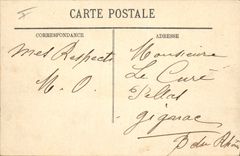 CARTE POSTALE
CORRESPONDANCE
ADRESSE
mes Respects
M. O.
Monsieur
Le Curé
gignac
B du Rhône